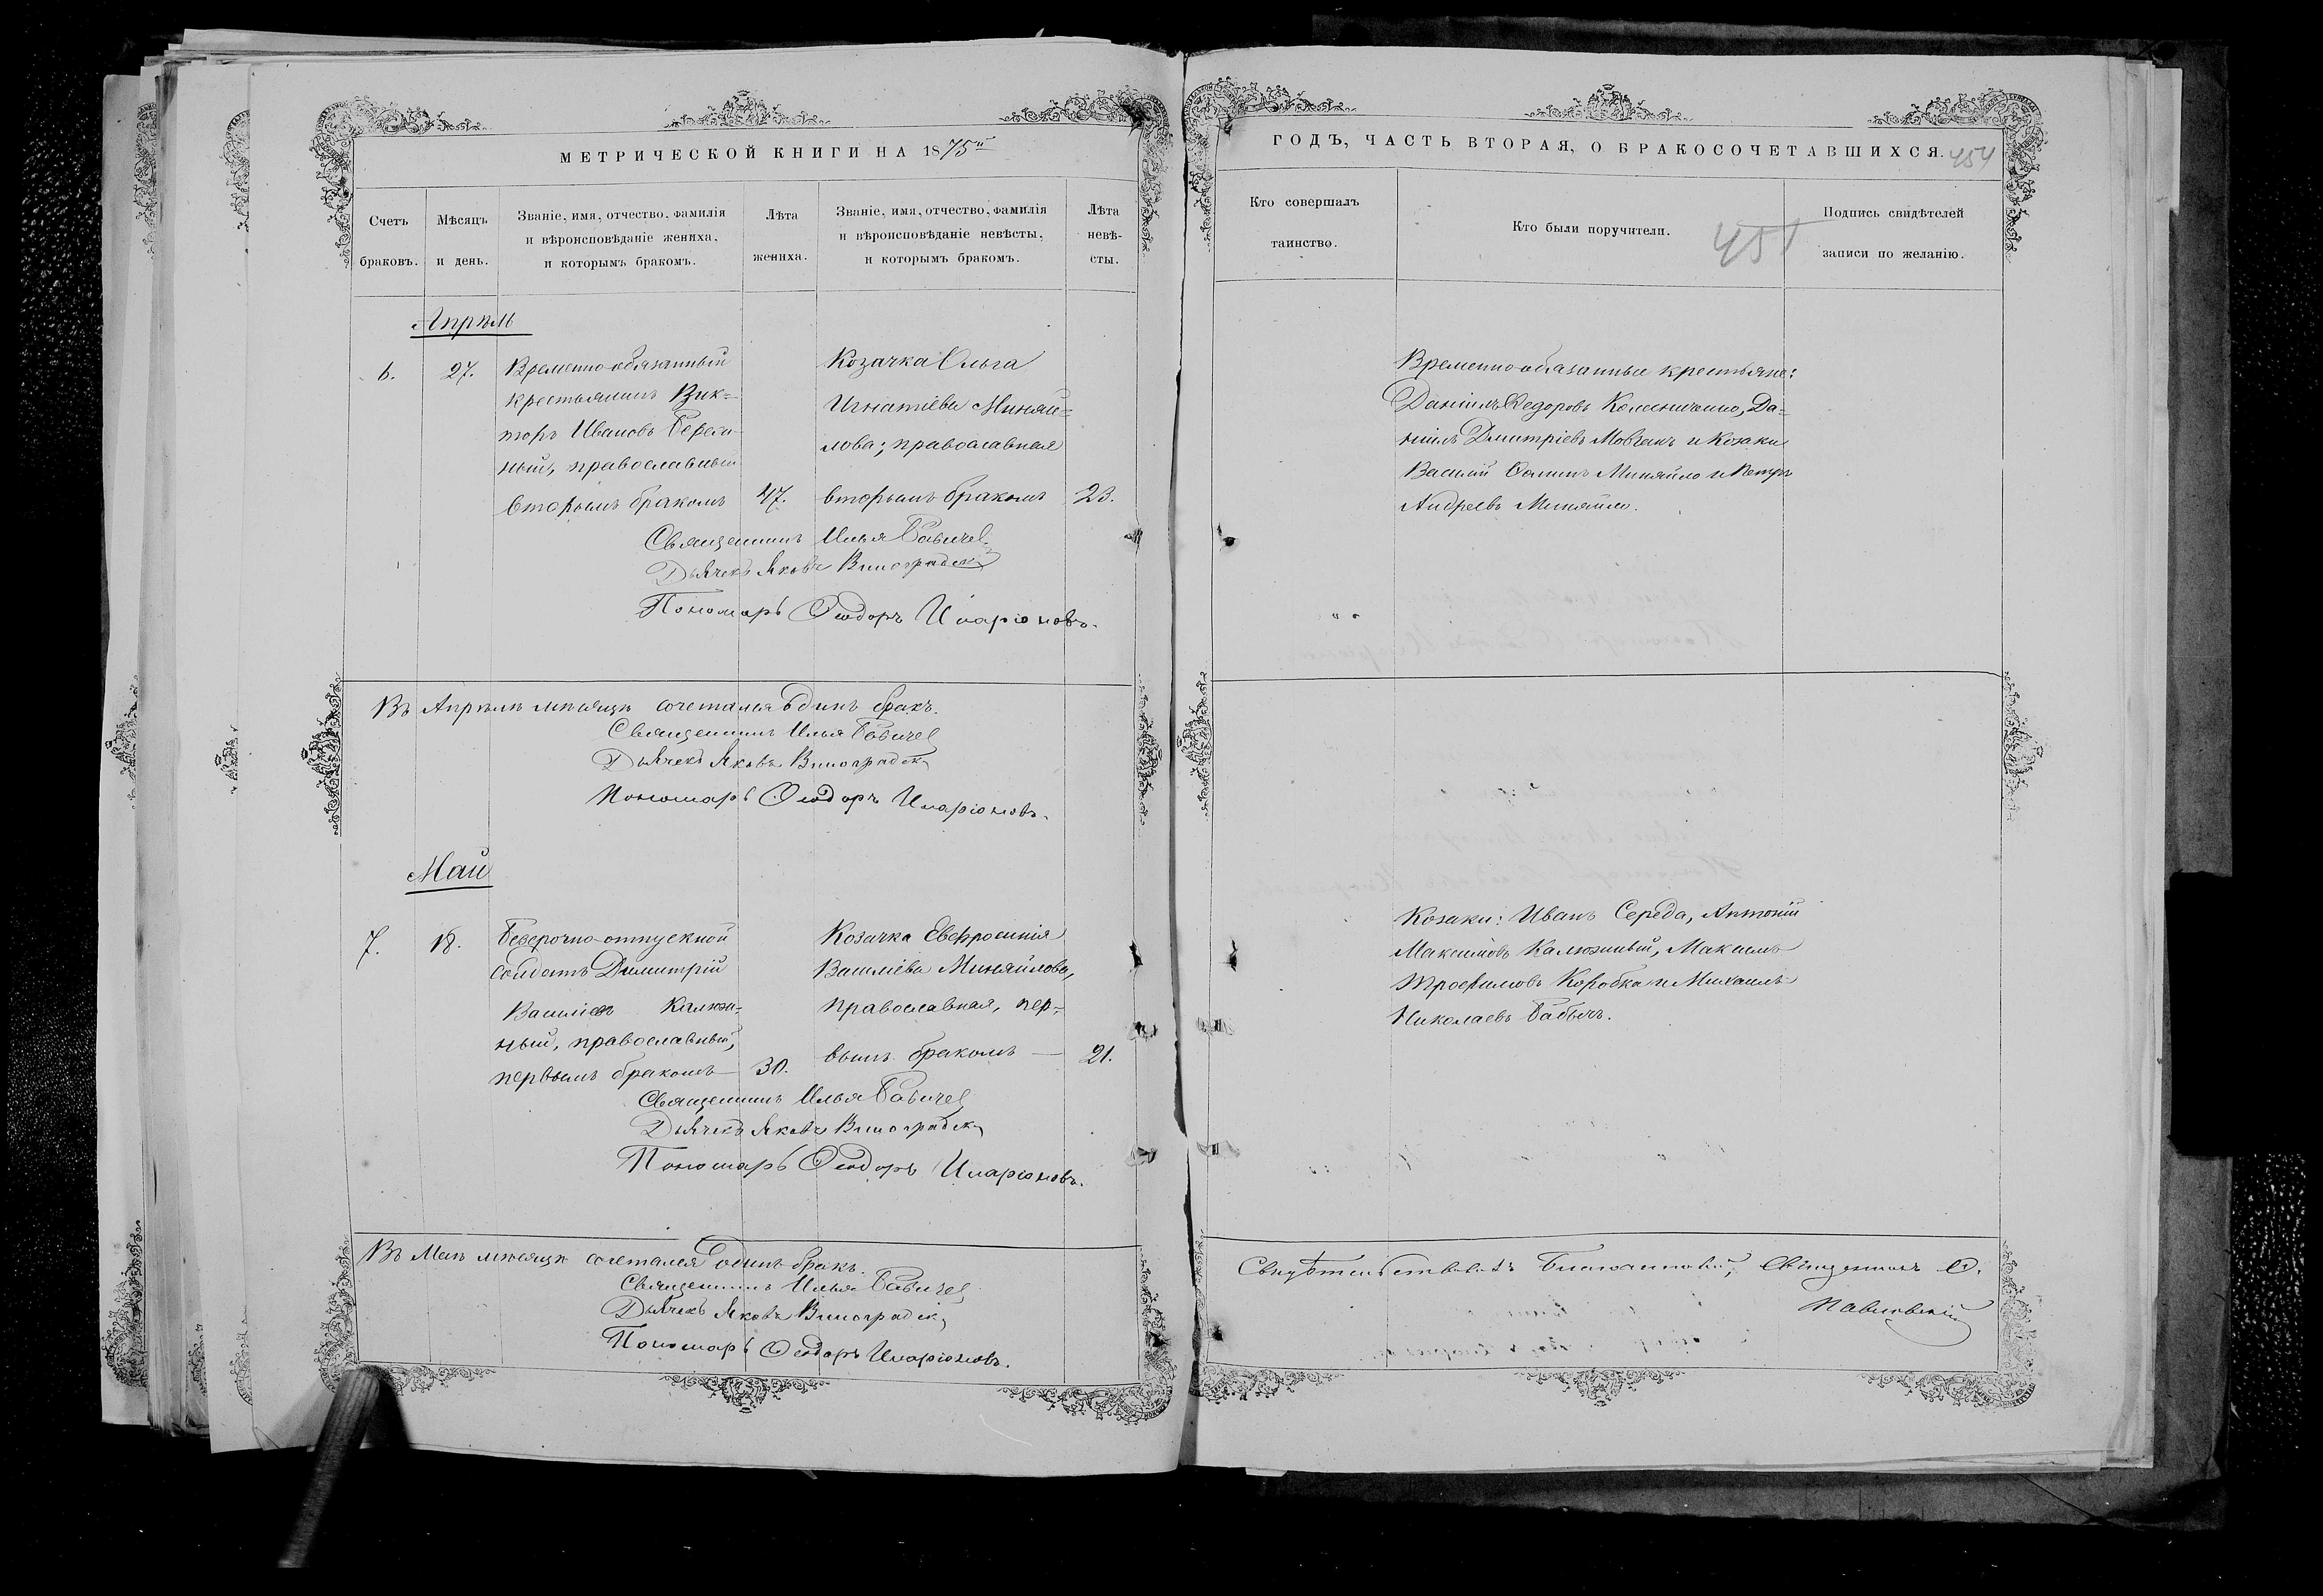 МЕТРИЧЕСКОЙ КНИГИ НА 1875й
Счетъ браковъ.
Мѣсяцъ и день.
Званіе, имя, отчество, фамилія и вѣроисповѣданіе жениха, и которымъ бракомъ.
Лѣта жениха.
Званіе, имя, отчество, фамилія и вѣроисповѣданіе невѣсты, и которымъ бракомъ.
Лѣта невѣ-
сты.
Апрѣль
6.
27.
Временно-обязанный
крестьянинъ Вик=
торъ Ивановъ
ный, православный
вторымъ бракомъ
47.
Козачка Ольга
Игнатіева Миняй=
лова; православная
вторымъ бракомъ
23.
Священникъ Илья
Дьячекъ Яковъ Виноградск
Пономарь Ѳеодоръ Иларіоновъ.
Въ Апрѣлѣ мѣсяцѣ сочетался одинъ бракъ.
Священникъ Илья
Дьячекъ Яковъ Виноградск
Пономарь Ѳеодоръ Иларіоновъ.
Май
7.
18.
отпускной
солдатъ Димитрій
Василіевъ Калюж=
ный, православный,
первымъ бракомъ —
30.
Козачка Евфросинія
Василіева Миняйлова,
православная, пер=
вымъ бракомъ —
21.
Священникъ Илья
Дьячекъ Яковъ Виноградск
Пономарь Ѳеодоръ Иларіоновъ.
Въ Маѣ мѣсяцѣ сочетался одинъ бракъ.
Священникъ Илья
Дьячекъ Яковъ Виноградск
Пономарь Ѳеодоръ Иларіоновъ.
ГОДЪ, ЧАСТЬ ВТОРАЯ, О БРАКОСОЧЕТАВШИХСЯ.
454
Кто совершалъ таинство.
Кто были поручители.
451
Подпись свидѣтелей записи по желанію.
Временно-обязанные крестьяне:
Даніилъ Ѳедоровъ Колесниченко, Да=
ніилъ Дмитріевъ Мовчанъ и Козаки
Василій Ѳоминъ Миняйло и Петръ
Андреевъ Миняйло.
Козаки: Иванъ Середа, Антоній
Максимовъ Калюжный, Максимъ
Трофимовъ Коробка и Михаилъ
Николаевъ Бабычъ.
Священникъ
Павловскій